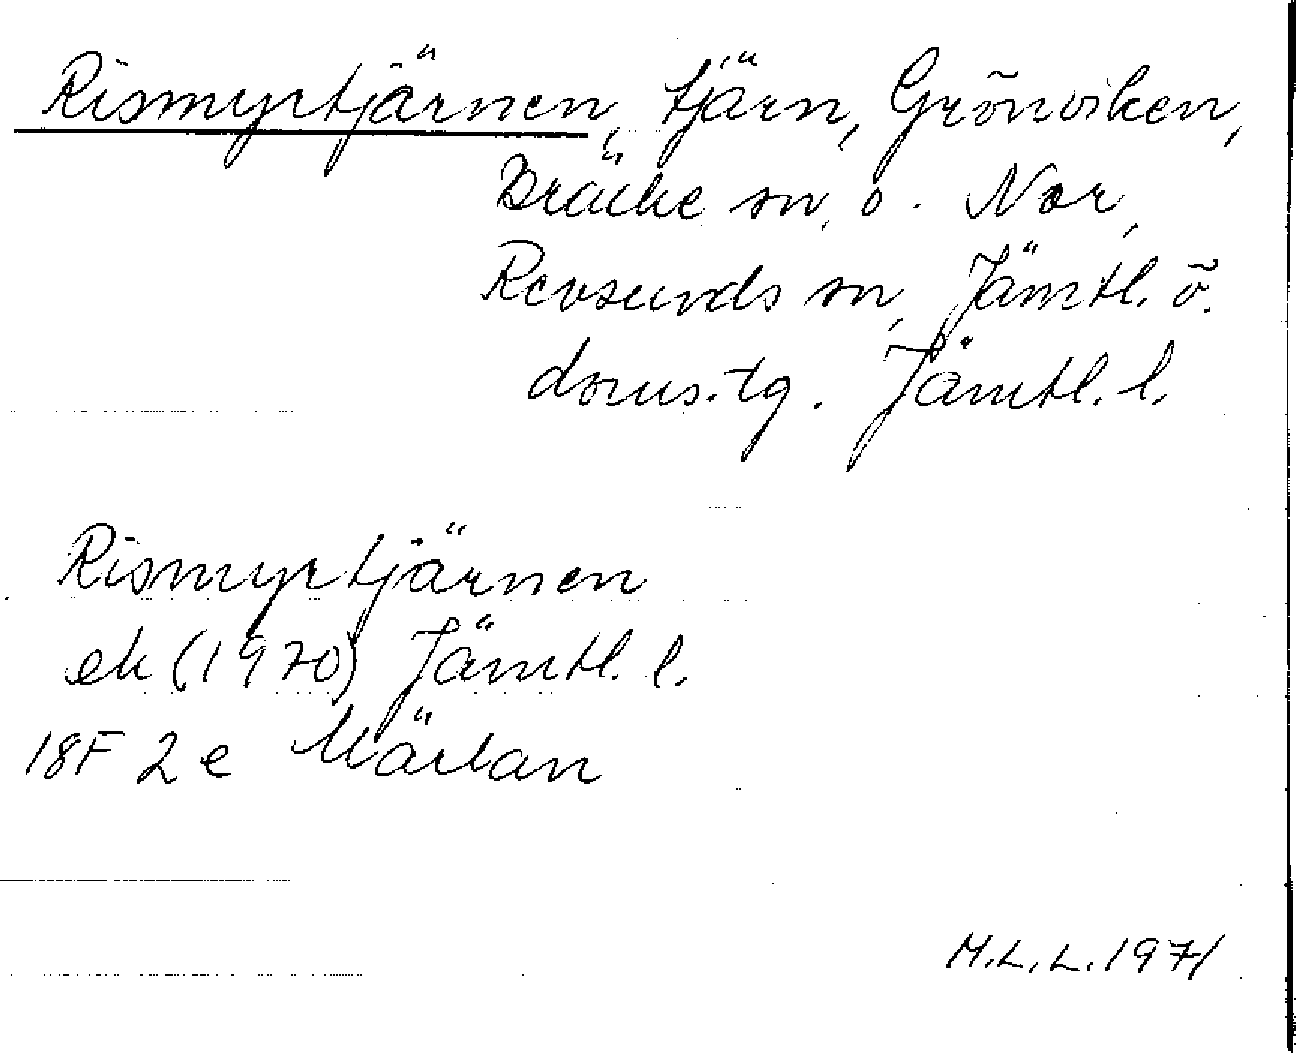 Rismyrtjärnen, tjärn, Grönviken,
Bräcke sn, o. Nor,
Revsunds sn, Jämtl. ö.
doms.tg. Jämtl. l.
Rismyrtjärnen
ek (1970) Jämtl. l.
18F 2e Mårban
M.L.L. 1971